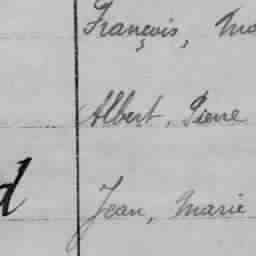 François,
Albert, Pierre
Jean, Marie